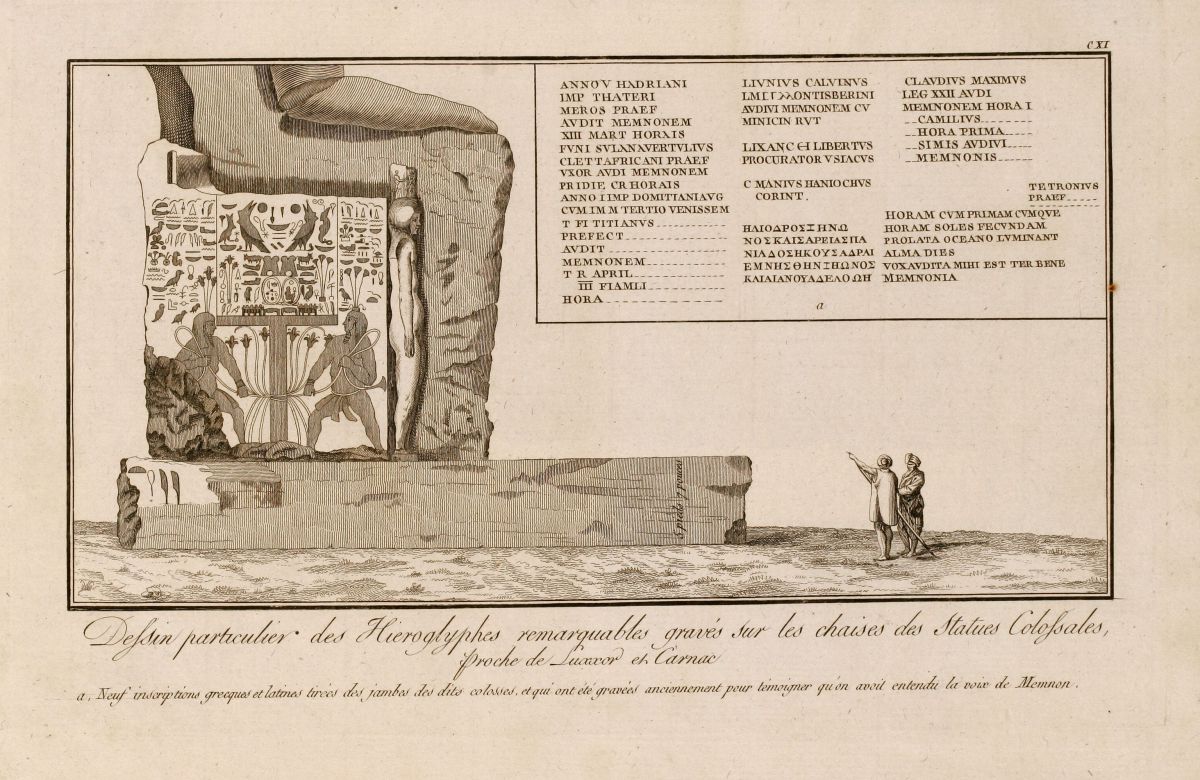 CXI
ANNOV HADRIANI
IMP THATERI
MEROS PRAEF
AVDIT MEMNONEM
XIII MART HORAIS
FVNI SVLANAVERTVLIVS
CLETTAFRICANI PRAEF
VXOR AVDI MEMNONEM
PRIDIE CR HORAIS
ANNO I IMP DOMITIANIAVG
CVM IM M TERTIO VENISSEM
T FI TITIANVS
PREFECT
AVDIT
MEMNONEM
T R APRIL
III FIAMLI
HORA
LIVNIVS CALVINVS
MONTISBERINI
AVDIVI MEMNONEM CV
MINICIN RVT
LIXANC LIBERTVS
PROCURATOR VSIACVS
C MANIVS HANIOCHVS
CORINT.
ΗΛΙΟΔΡΟΣΞΗΝΩ
ΝΟΣΚΑΙΣΑΡΕΙΑΣΠΑ
ΝΙΑΔΟΣΗΚΟΥΣΑΔΡΑΙ
ΕΜΝΗΣΘΗΝΞΗΩΝΟΣ
ΚΑΙΑΙΑΝΟΥΑΔΕΛΟΩΗ
CLAVDIVS MAXIMVS
LEG XXII AVDI
MEMNONEM HORA I
CAMILIVS
HORA PRIMA
SIMIS AVDIVI
MEMNONIS
TETRONIVS
PRAEF
HORAM CVM PRIMAM CVMQVE
HORAM SOLES FECVNDAM
PROLATA OCEANO LVMINANT
ALMA DIES
VOXAVDITA MIHI EST TER BENE
MEMNONIA
a
5 pieds 7 pouces
Dessin particulier des Hieroglyphes remarquables gravés sur les chaises des Statues Colossales,
proche de Luxxor et Carnac
a, Neuf inscriptions grecques et latines tirées des jambes des dites colosses, et qui ont été gravées anciennement pour témoigner qu'on avoit entendu la voix de Memnon.